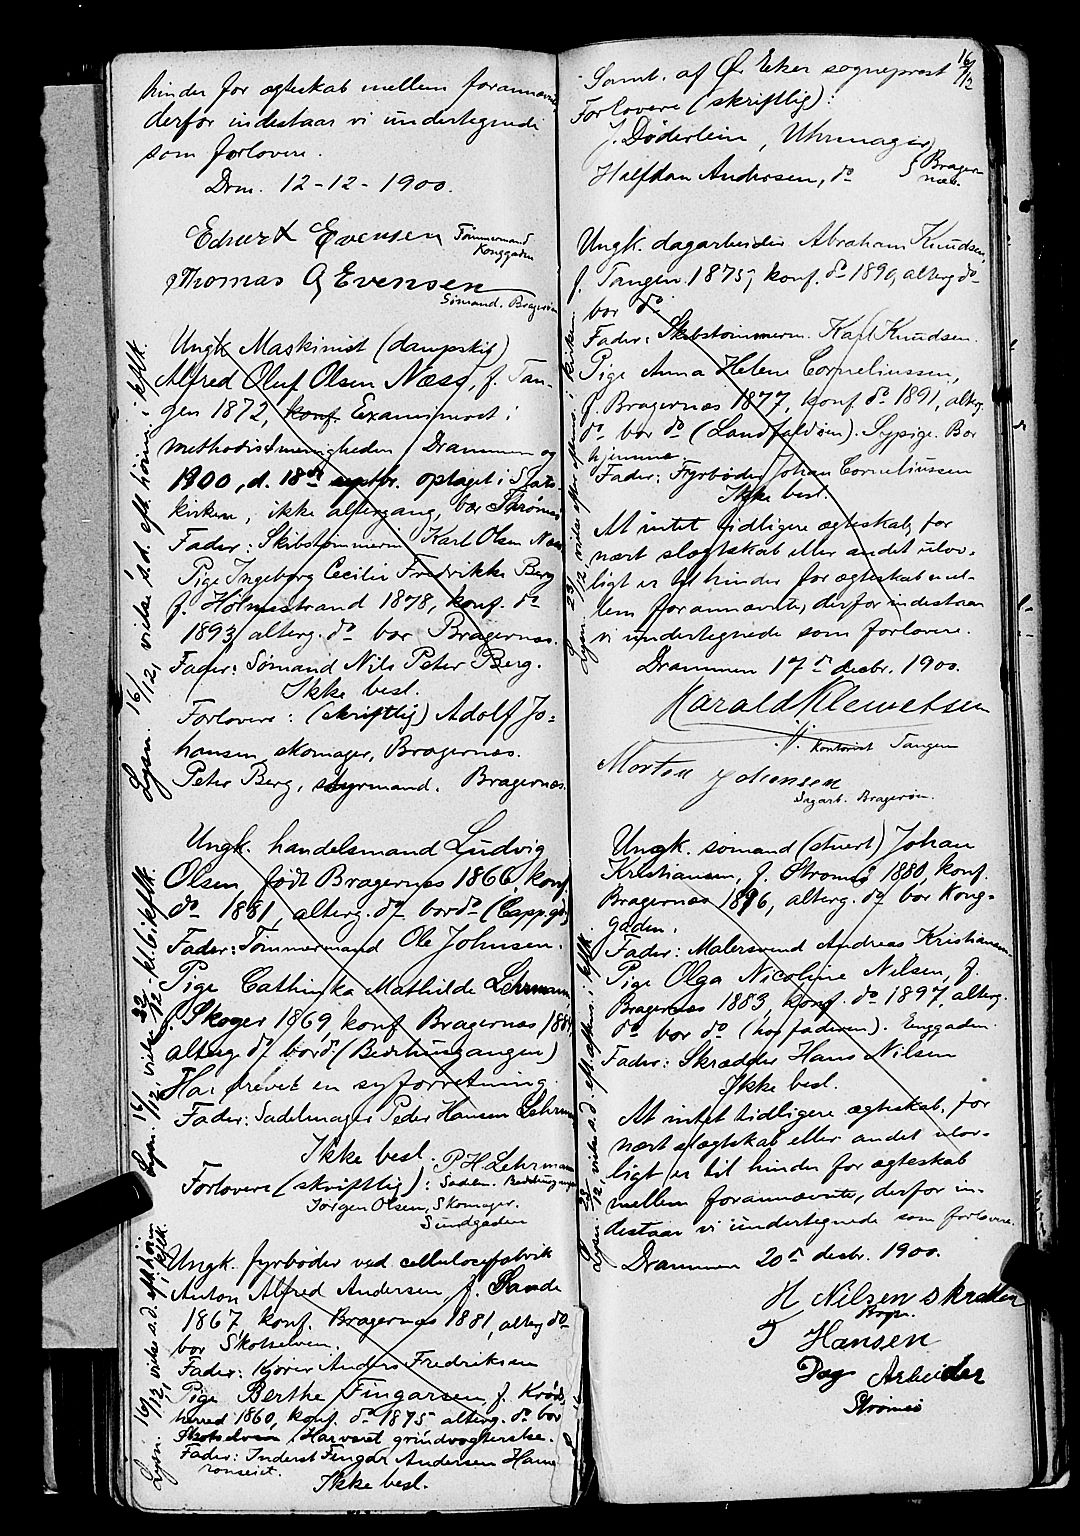 hinder for ægteskab mellem forannævnte
derfor indestaar vi undertegnede
som forlovere.
Drm. 12-12-1900.
Edvard Evensen Tømmermand
Konggaden
Thomas G Evensen
Sømand. Bragerøen
Ungk. Maskinist (dampskib)
Alfred Oluf Olsen Næss, f. Tan-
gen 1872, konf. Examineret i
methodistmenigheden Drammen og
1900, d. 18de septbr. optaget i Stats-
kirken, ikke altergang, bor Strømsø
Fader: Skibstømmerm. Karl Olsen Næss
Pige Ingeborg Cecilie Fredrikke Berg
f. Holmestrand 1878, konf. do
1893, alterg. do bor Bragernæs.
Fader: Sømand Nils Peter Berg.
Ikke besl.
Forlovere: (skriftlig) Adolf Jo-
hansen, skomager, Bragernæs.
Peter Berg, styrmand. Bragernæs.
Lysn. 16/12, vielse s.d. eft. høim. i kflk.
Ungk. handelsmand Ludvig
Olsen, født Bragernæs 1866, konf.
do 1881, alterg. do bor do (Capp.gd)
Fader: Tømmermand Ole Johnsen.
Pige Cathinka Mathilde Lehrmann
f. Skoger 1869, konf. Bragernæs 1884
alterg. do bor do (Bedehusgangen)
Har drevet en syforretning.
Fader: Sadelmager Peder Hansen Lehrmann
Ikke besl.
Forlovere (skriftlig): P H Lehrmann
Sadelm. Bedehusgangen
Jørgen Olsen, Skomager.
Sundgaden
Lysn. 16/12, vielse 22/12 kl. 6 i kflk.
Ungk. fyrbøder ved cellulosefabrik
Anton Alfred Andersen, f. Sande
1867, konf. Bragernæs 1881, alterg do
bor Skotselven.
Fader: Kjører Anders Fredriksen
Pige Berthe Fingarsen, f. Krøds-
herred 1860, konf. do 1875 alterg. do bor
Skotselven. Har været
Fader: Inderst Fingar Andersen Hame
ronseiet.
Ikke besl.
Lysn. 16/12, vielse s.d. eft. høim i kflk.
Samt. af Ø. Eker sogneprest 16/12
Forlovere (skriftlig):
J. Døderlein, Uhrmager
Halfdan Andresen, do } Brager-
næs.
Ungk. dagarbeider Abraham Knudsen,
f. Tangen 1875, konf. do 1890, alterg do
bor do
Fader: Skibstømmerm. Karl Knudsen.
Pige Anna Helene Corneliussen,
f. Bragernæs 1877, konf do 1891, alterg.
do bor do (Landfaldøen). Sypige. Bor
hjemme.
Fader: Fyrbøder Johan Corneliussen
Ikke besl.
At intet tidligere ægteskab, for
nært slægtskab eller andet ulov-
ligt er til hinder for ægteskab mel-
lem forannævnte, derfor indestaar
vi undertegnede som forlovere.
Drammen 17de decbr. 1900.
Harald Klewetsen
kontorist Tangen
Morten Johensen
Dagarb. Bragerøen.
Lysn. 23/12, vielse i kirken
Ungk. sømand (stuert) Johan
Kristiansen, f. Strømsø 1880, konf.
Bragernæs 1896, alterg. do bor Kong-
gaden.
Fader: Malersvend Andreas Kristiansen
Pige Olga Nicoline Nilsen, f.
Bragernæs 1883, konf. do 1897 alterg.
do bor do (hos faderen). Enggaden.
Fader: Skrædder Hans Nilsen
Ikke besl.
At intet tidligere ægteskab, for
nært slægtskab eller andet ulov-
ligt er til hinder for ægteskab
mellem forannævnte, derfor in-
destaar vi undertegnede som forlovere.
Drammen 20de decbr. 1900.
H Nilsen skræder
Brgn.
T Hansen
Dag Arbeider
Strømsø
Lysn. 23/12, vielse s.d. eft. aftens. i kflk.